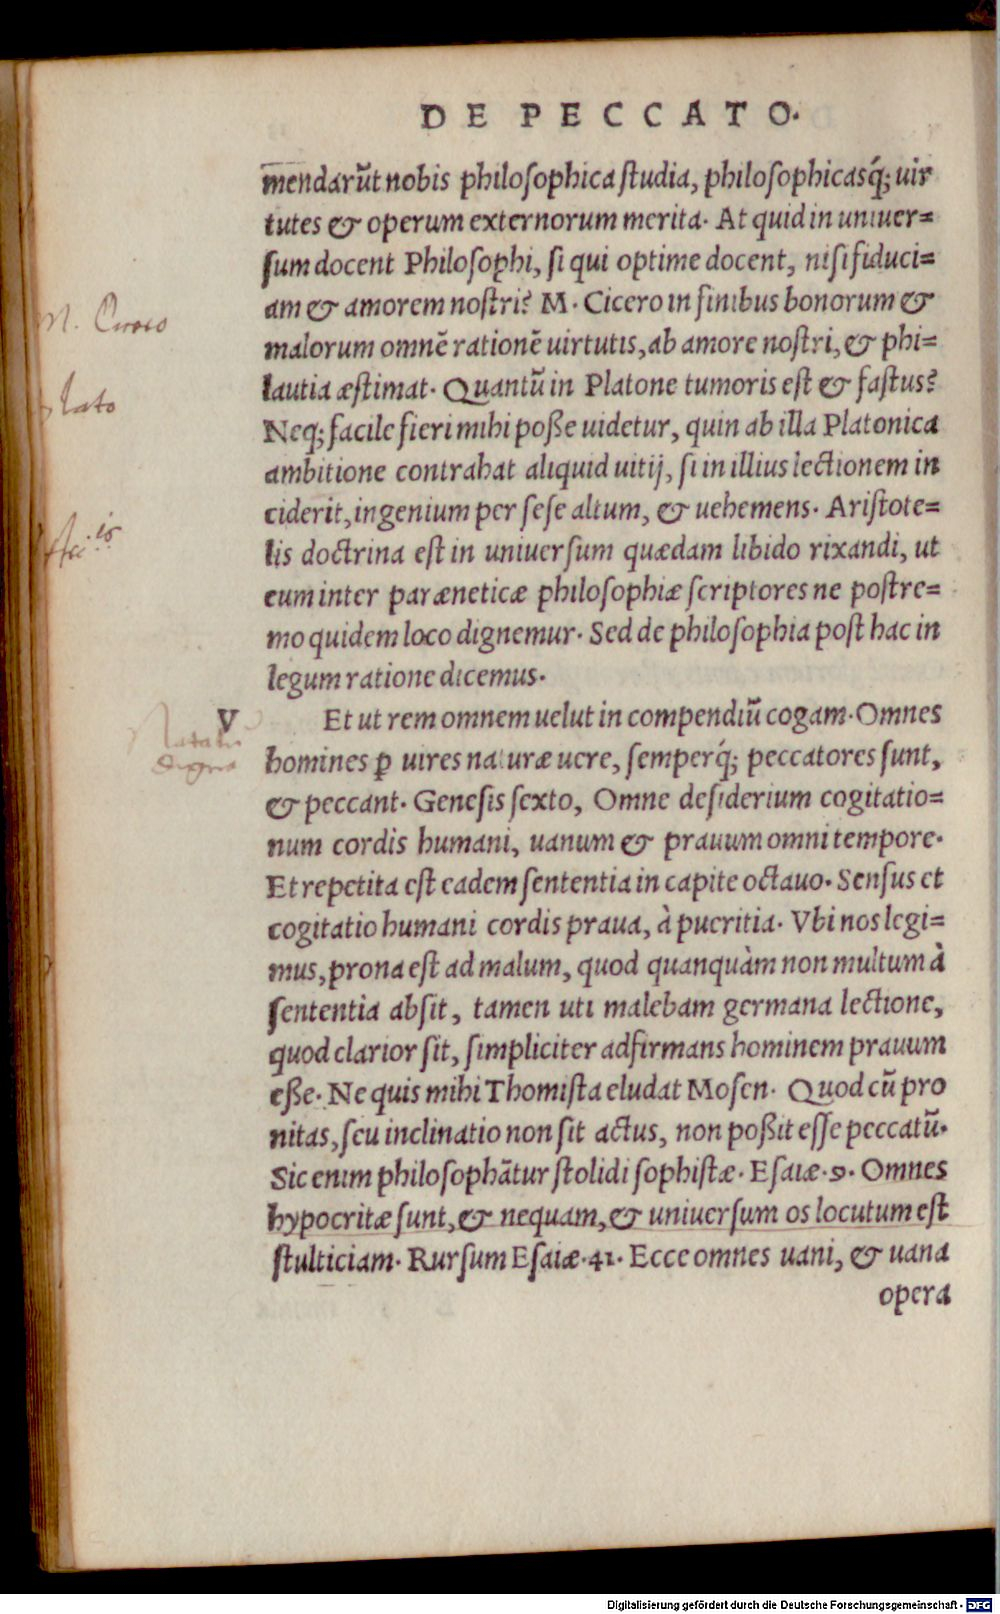 DE PECCATO.
mendarūt nobis philosophica studia, philosophicasq́; uir
tutes & operum externorum merita. At quid in uniuer=
sum docent Philosophi, si qui optime docent, nisi fiduci=
am & amorem nostri? M. Cicero in finibus bonorum &
malorum omnē rationē uirtutis, ab amore nostri, & phi=
lautia æstimat. Quantū in Platone tumoris est & fastus?
Neq; facile fieri mihi posse uidetur, quin ab illa Platonica
ambitione contrahat aliquid uitij, si in illius lectionem in
ciderit, ingenium per sese altum, & uehemens. Aristote=
lis doctrina est in uniuersum quædam libido rixandi, ut
eum inter paræneticæ philosophiæ scriptores ne postre=
mo quidem loco dignemur. Sed de philosophia post hac in
legum ratione dicemus.
V Et ut rem omnem uelut in compendiū cogam. Omnes
homines ꝑ uires naturæ uere, semperq́; peccatores sunt,
& peccant. Genesis sexto, Omne desiderium cogitatio=
num cordis humani, uanum & prauum omni tempore.
Et repetita est eadem sententia in capite octauo. Sensus et
cogitatio humani cordis praua, à pueritia. Vbi nos legi=
mus, prona est ad malum, quod quanquàm non multum à
sententia absit, tamen uti malebam germana lectione,
quod clarior sit, simpliciter adfirmans hominem prauum
esse. Ne quis mihi Thomista eludat Mosen. Quod cū pro
nitas, seu inclinatio non sit actus, non possit esse peccatū.
Sic enim philosophātur stolidi sophistæ. Esaiæ. 9. Omnes
hypocritæ sunt, & nequam, & uniuersum os locutum est
stulticiam. Rursum Esaiæ. 41. Ecce omnes uani, & uana
opera
M. Cicero
Plato
Digitalisierung gefördert durch die Deutsche Forschungsgemeinschaft - DFG